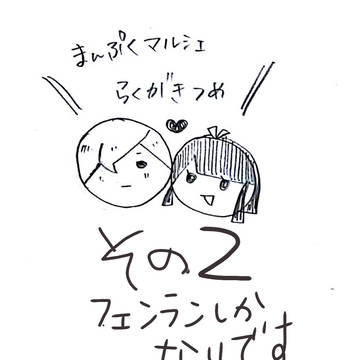 まんぷくマルシェ
らくがきつめ
その2
フェンランしか
ないです